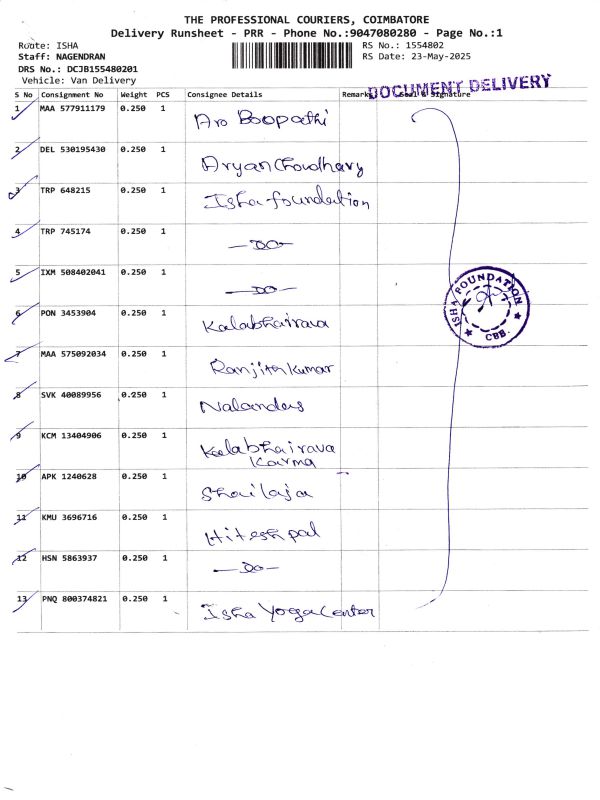 THE PROFESSIONAL COURIERS, COIMBATORE
Delivery Runsheet - PRR - Phone No.:9047080280 - Page No.:1
Route: ISHA
RS No.: 1554802
Staff: NAGENDRAN
RS Date: 23-May-2025
DRS No.: DCJB155480201
Vehicle: Van Delivery
DOCUMENT DELIVERY
S No Consignment No Weight PCS Consignee Details Remarks Seal & Signature
1 MAA 577911179 0.250 1 Aro Boopathi
2 DEL 530195430 0.250 1 Aryan Choudhary
3 TRP 648215 0.250 1 Isha foundation
4 TRP 745174 0.250 1 —DO—
5 IXM 508402041 0.250 1 —DO—
6 PON 3453904 0.250 1 Kalabhairava
7 MAA 575092034 0.250 1 Ranjith Kumar
8 SVK 40089956 0.250 1
9 KCM 13404906 0.250 1 Kalabhairava
Karma
10 APK 1240628 0.250 1 Shailaja
11 KMU 3696716 0.250 1 Hitesh pal
12 HSN 5863937 0.250 1 —Do—
13 PNQ 800374821 0.250 1 Isha Yoga Center
ISHA FOUNDATION
CBB.